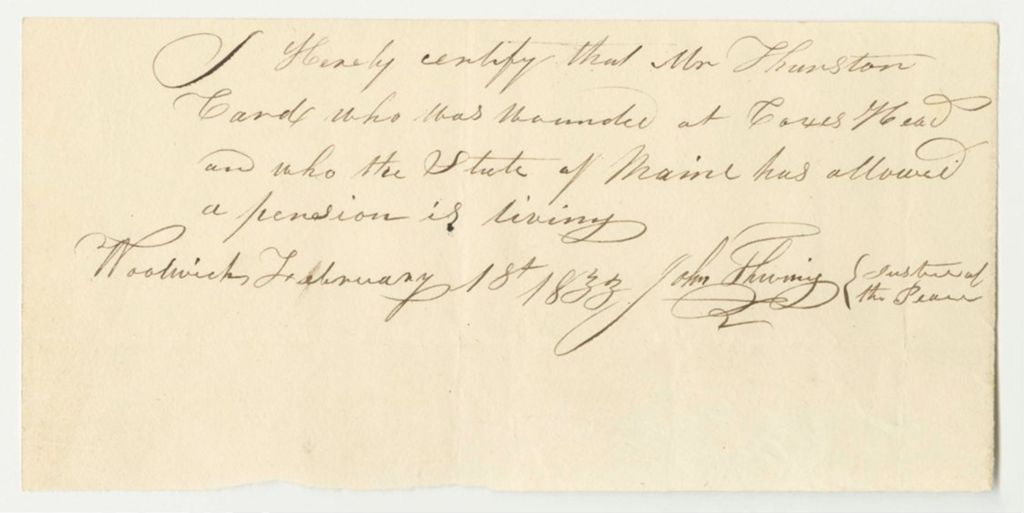 I Hereby certify that Mr Thurston
Card who was wounded at Coxes Head
an who the State of Maine has allowed
a pension is living
Woolwich February 18t 1833 John Thwing { Justice of
the Peace